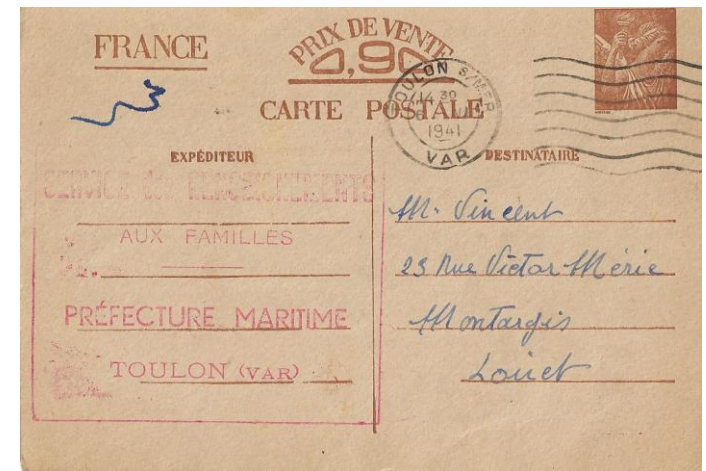 FRANCE
PRIX DE VENTE
0,90
CARTE POSTALE
TOULON S/MER
14 30
1941
VAR
EXPÉDITEUR
SERVICE des RENSEIGNEMENTS
AUX FAMILLES
PRÉFECTURE MARITIME
TOULON (VAR)
DESTINATAIRE
Mr Vincent
23 Rue Victor Mérie
Montargis
Loiret